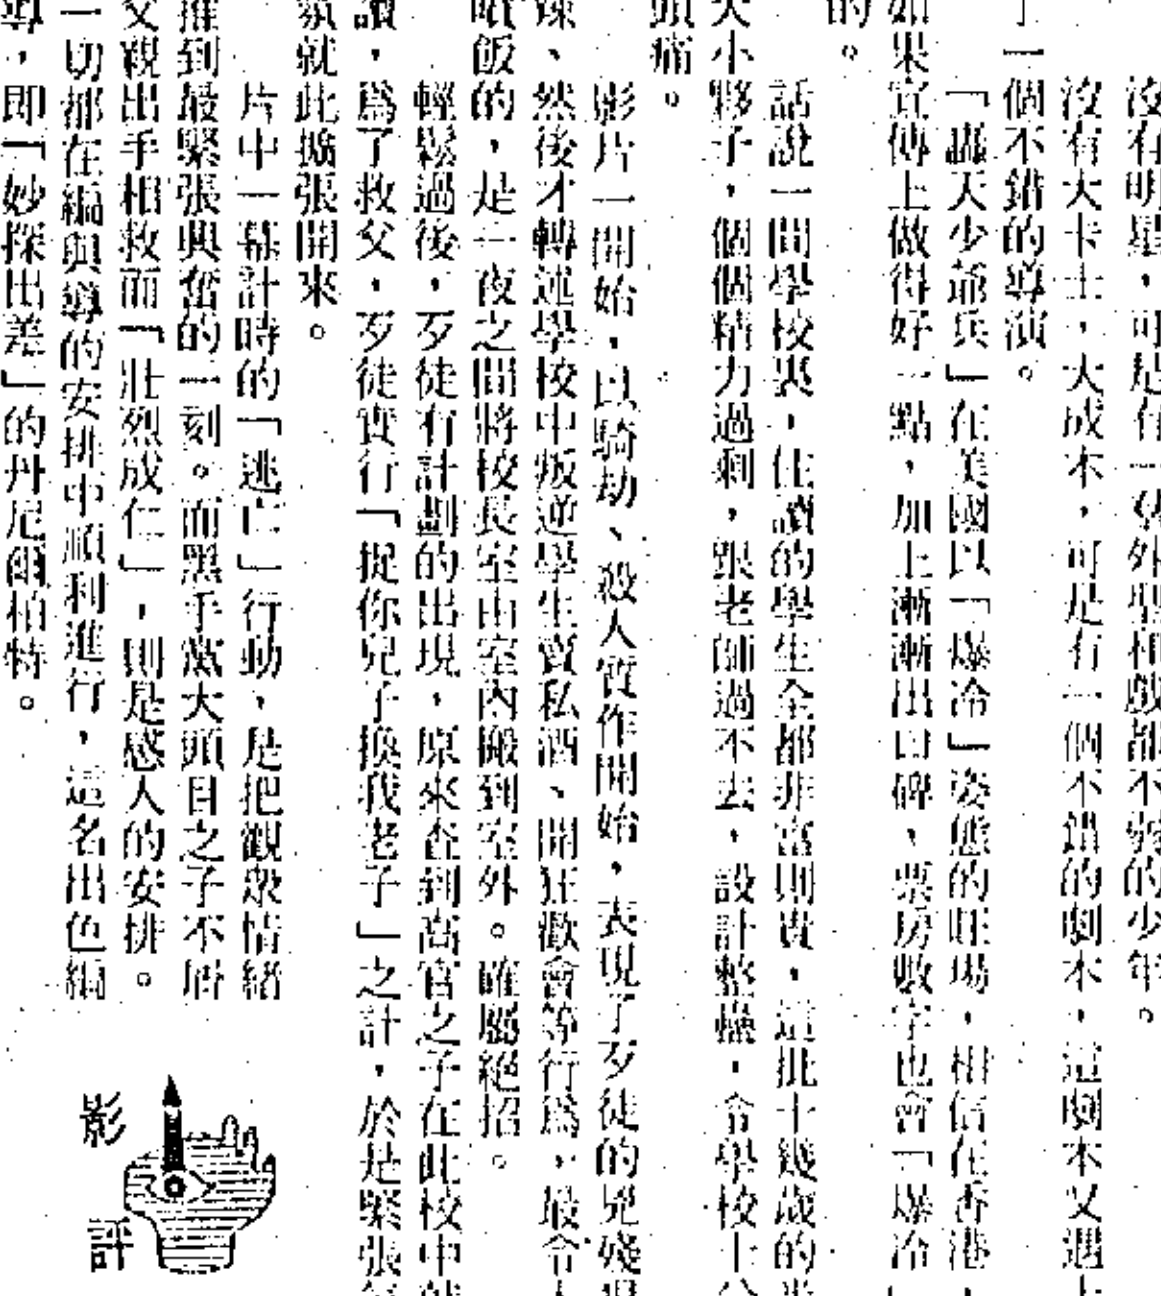 沒有明星，可是有一羣外型和戲都不弱的少年。
沒有大卡士，大成本，可是有一個不錯的劇本，這劇本又遇上
了一個不錯的導演。
「轟天少爺兵」在美國以「爆冷」姿態的旺場，相信在香港，
如果宣傳上做得好一點，加上漸漸出口碑，票房數字也會「爆冷」
的。
話說一間學校裏，住讀的學生全都非富則貴，這批十幾歲的
大小夥子，個個精力過剩，跟老師過不去，設計整蠱，令學校十分
頭痛。
影片一開始，由騎劫、殺人質作開始，表現了歹徒的兇殘
辣、然後才轉述學校中叛逆學生賣私酒、開狂歡會等行爲，最令人
噴飯的，是一夜之間將校長室由室內搬到室外。確屬絕招。
輕鬆過後，歹徒有計劃的出現，原來查到高官之子在此校中就
讀，爲了救父，歹徒實行「捉你兒子換我老子」之計，於是緊張氣
氛就此擴張開來。
片中一幕計時的「逃亡」行動，是把觀衆情緒
推到最緊張興奮的一刻。而黑手黨大頭目之子不屑
父親出手相救而「壯烈成仁」，則是感人的安排。
一切都在編與導的安排中順利進行，這名出色編
導，即「妙探出差」的丹尼爾柏特。
影評